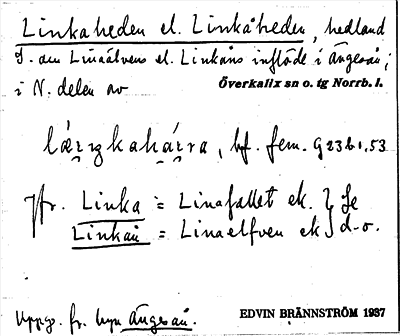 Linkaheden el. Linkåheden, hedland
S. om Linaälvens el. Linkåns inflöde i Ängesån;
i N. delen av Överkalix sn o. tg Norrb. l.
bf. fem. G23b1,53
Jfr. Linka = Linafallet ek. } Se
Linkån = Linaelfven ek } d.o.
Uppg. fr. byn Ängesån.
EDVIN BRÄNNSTRÖM 1937